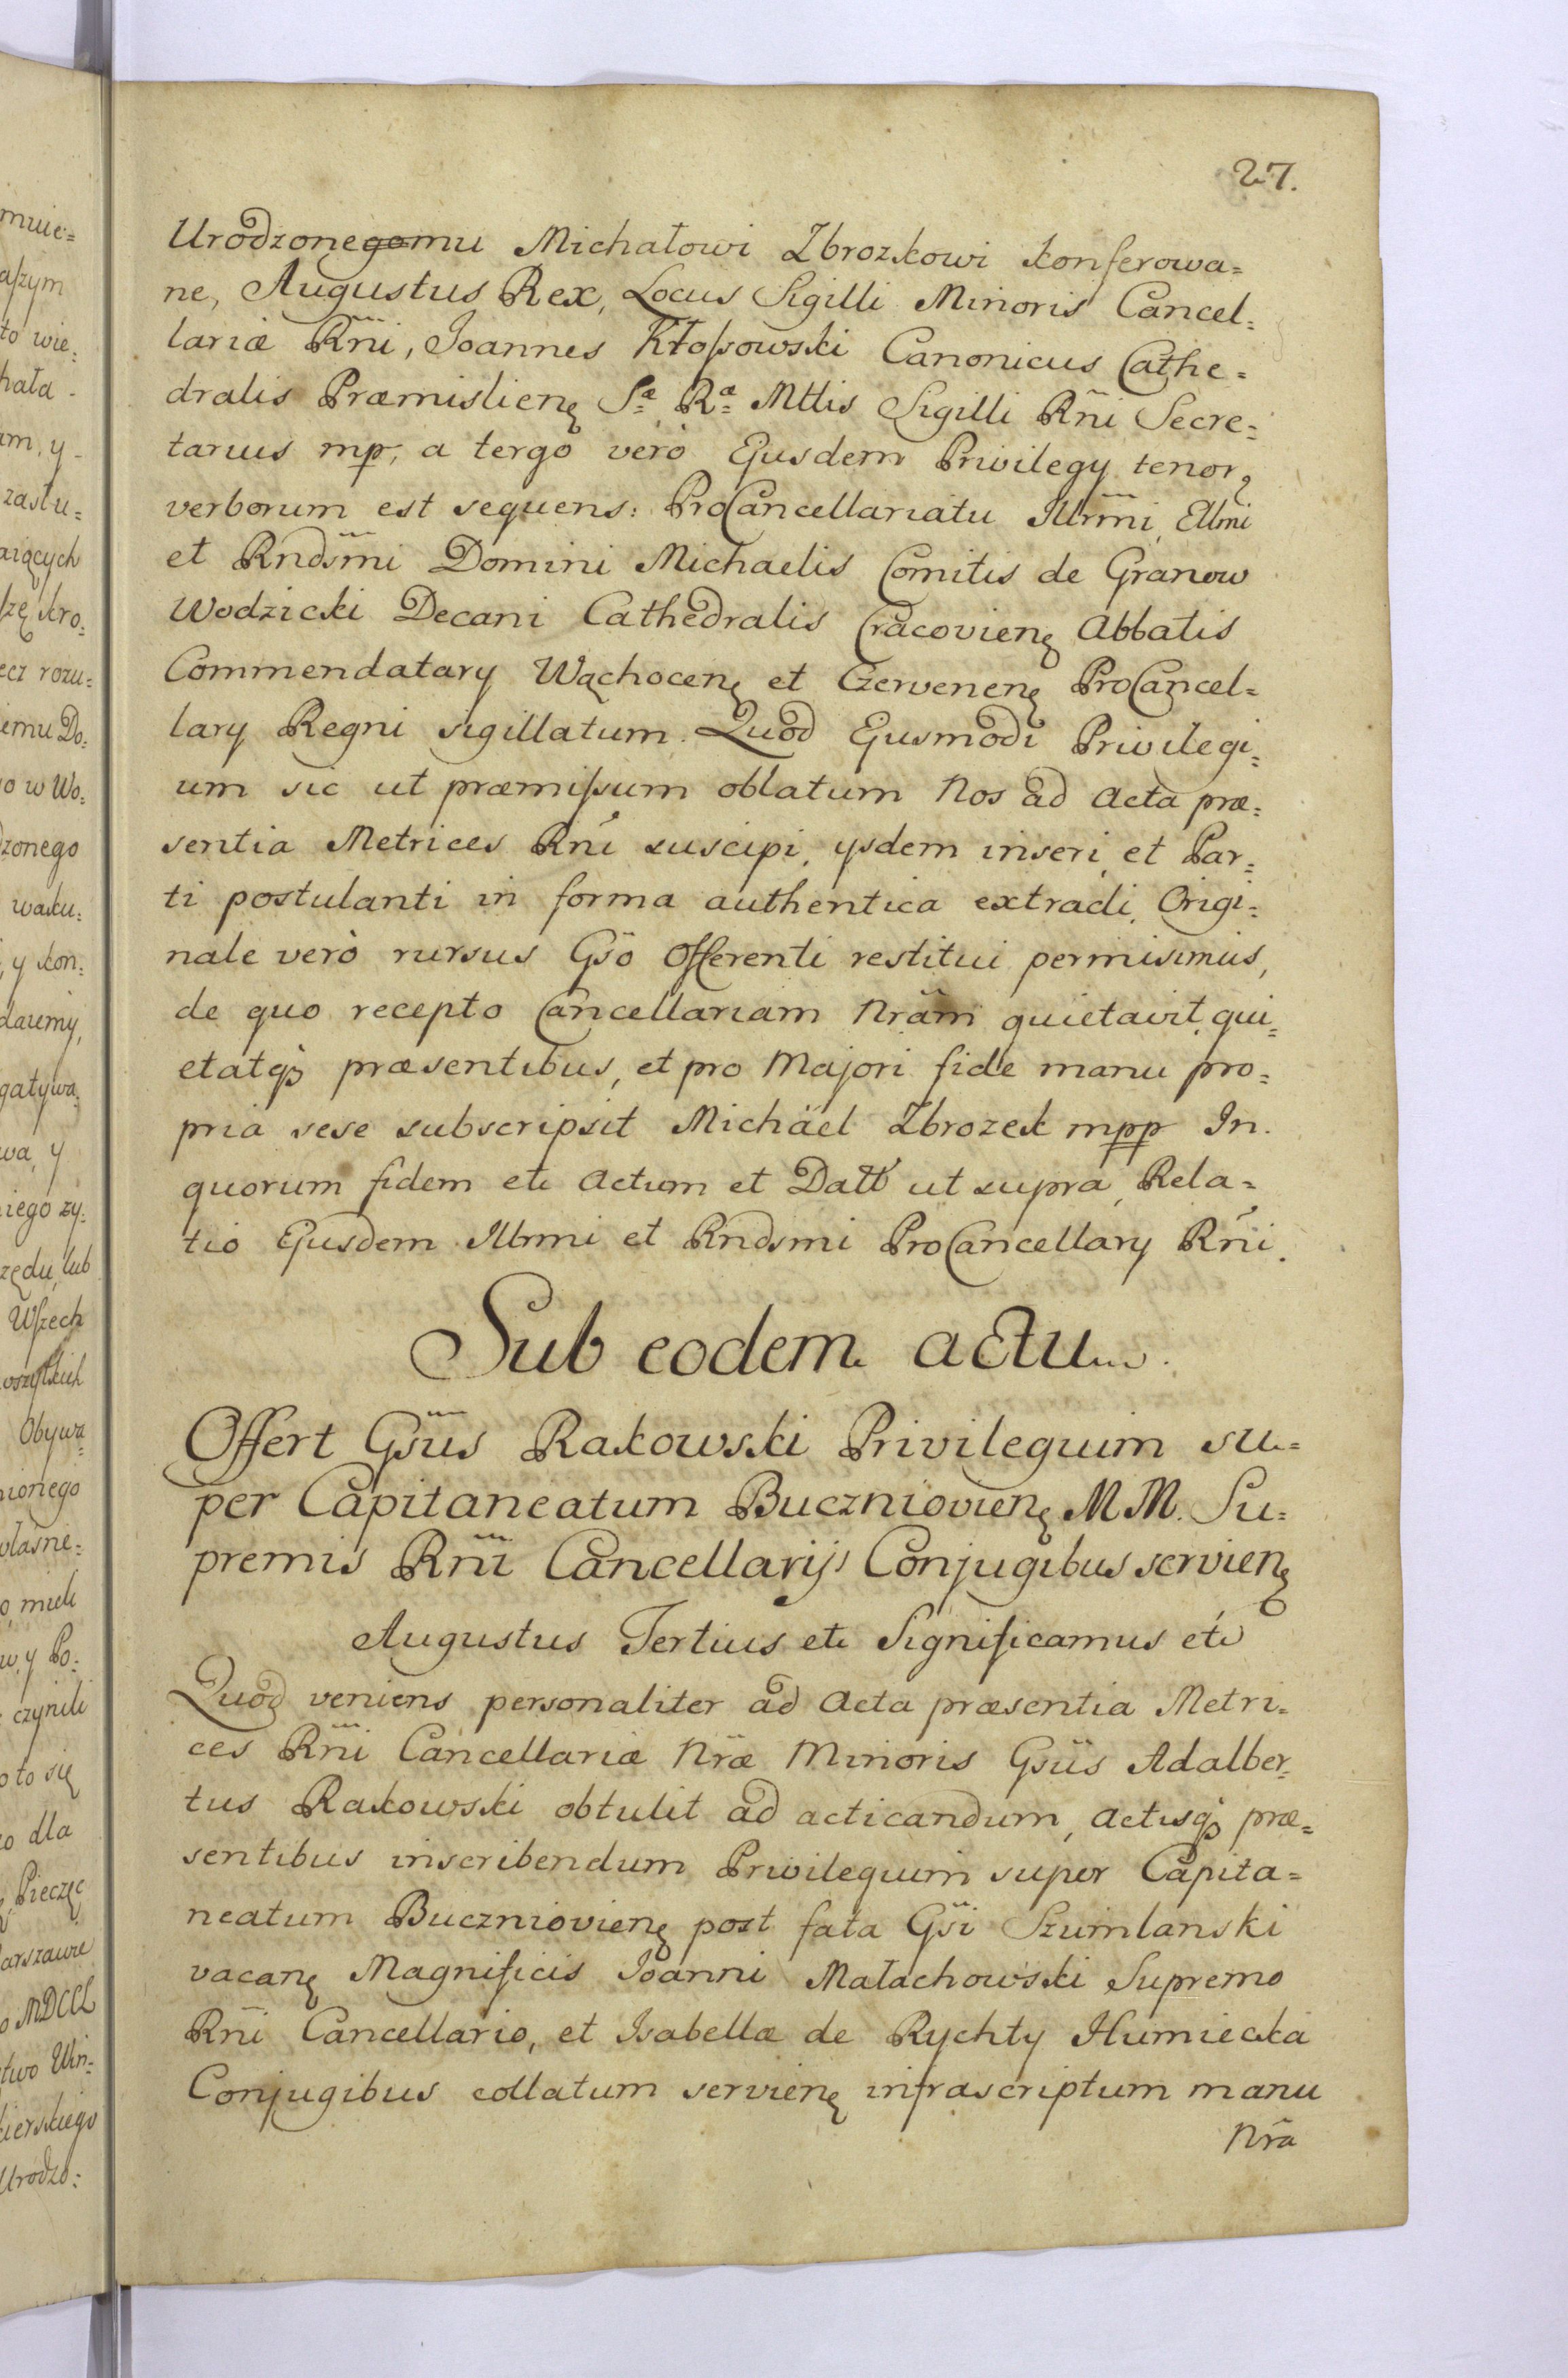 27.
Urodzonegomu Michałowi Zbrozkowi konferowa=
ne, Augustus Rex, Locus Sigilli Minoris Cancel=
lariæ Rñi, Joannes Kłoſsowski Canonicus Cathe=
dralis Præmislienȩ Sæ Ræ Mttis Sigilli Rñi Secre=
tarius mp, a tergo verò Ejusdem Privilegy tenor
verborum est sequens: ProCancellariatu Illrm̃i, Ellmi
et Rndsm̃i Domini Michaelis Comitis de Granow
Wodzicki Decani Cathedralis Cracovienȩ Abbatis
Commendatary Wąchocenȩ et Czervenenȩ ProCancel=
lary Regni sigillatum. Quod Ejusmodi Privilegi=
um sic ut præmiſsum oblatum Nos ad Acta præ=
sentia Metrices Rñi suscipi, ysdem inseri, et Par=
ti postulanti in forma authentica extradi, Origi=
nale verò rursus Gsõ Offerenti restitui permisimus,
de quo recepto Cancellariam Nrãm quietavit, qui=
etatqꝫ præsentibus, et pro Majori fide manu pro=
pria sese subscripsit Michäel Zbrozek mpp In
quorum fidem etc Actum et Datt ut supra, Rela=
tio Ejusdem Illrmi et Rndsmi ProCancellary Rñi.
Sub eodem actu.
Offert Gsũs Rakowski Privilegium su=
per Capitaneatum Buczniovienȩ M.M. Su=
premis Rñi Cancellarijs Conjugibus servienȩ
Augustus Tertius etc Significamus etc
Quod veniens personaliter ad Acta præsentia Metri=
ces Rñi Cancellariæ Nræ Minoris Gsũs Adalber=
tus Rakowski obtulit ad acticandum, Actisqꝫ præ=
sentibus inscribendum Privilegium super Capita=
neatum Buczniovienȩ post fata Gsĩ Szumlanski
vacanȩ Magnificis Joanni Małachowski Supremo
Rñi Cancellario, et Isabellæ de Rychty Humiecka
Conjugibus collatum servienȩ infrascriptum manu
Nrã